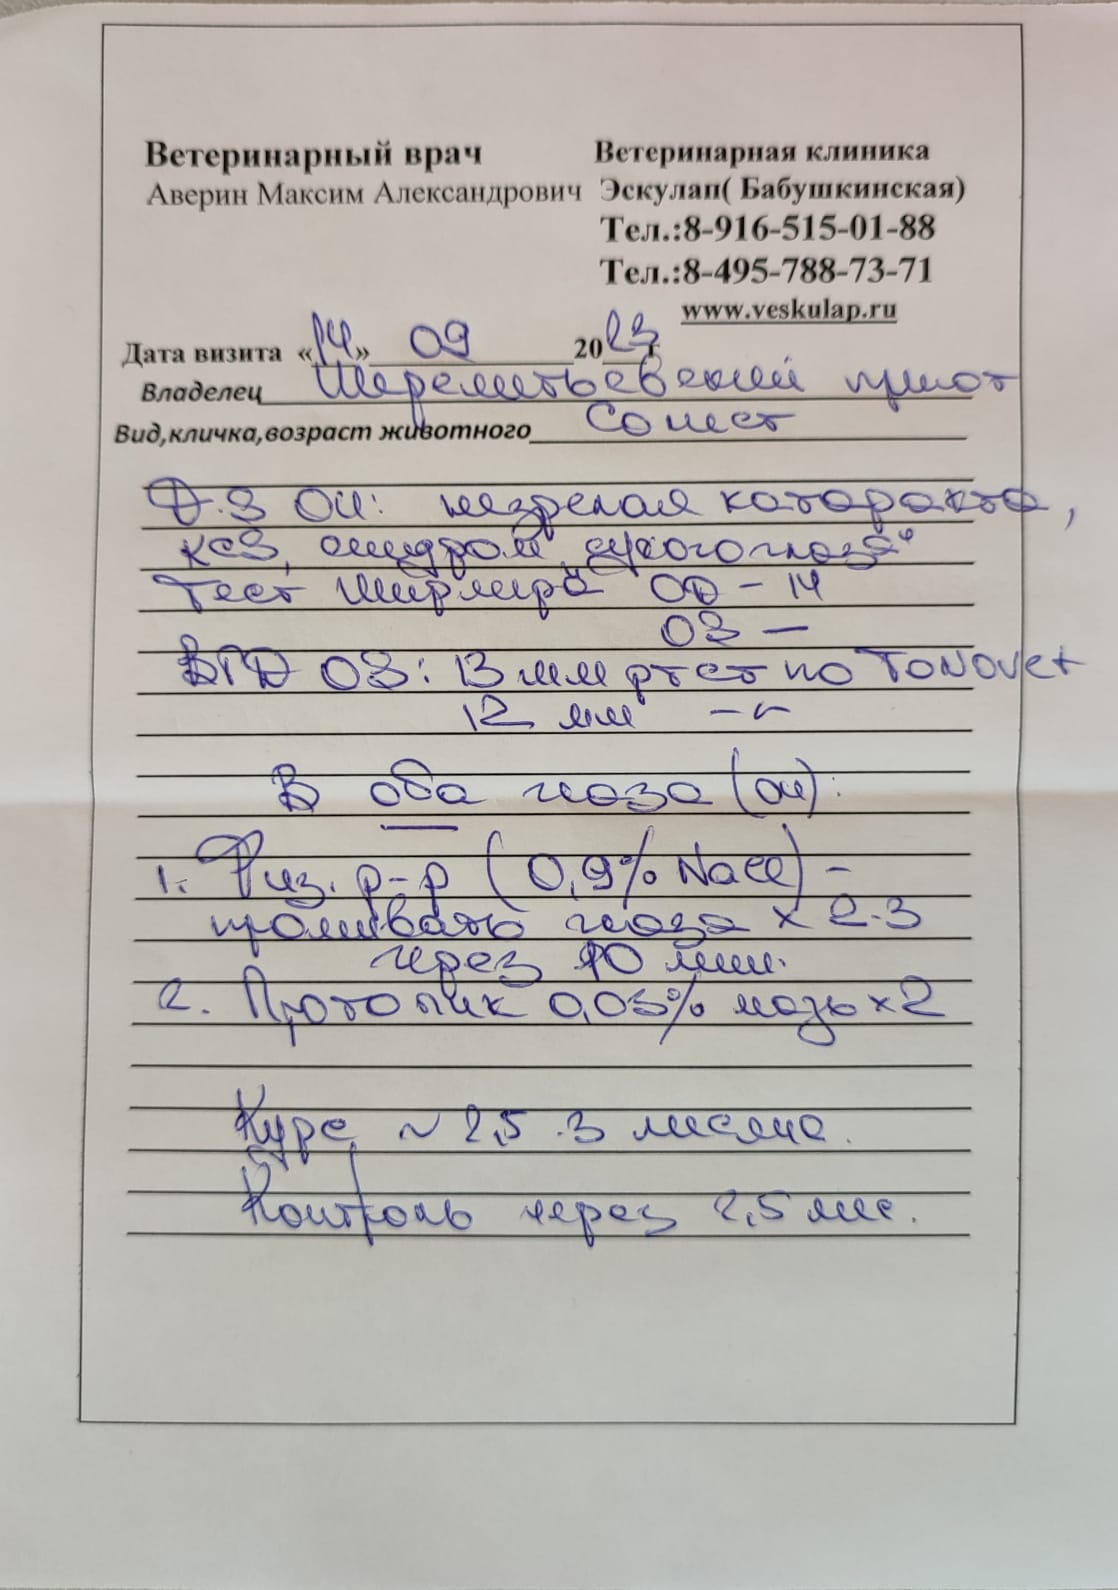 Ветеринарный врач
Аверин Максим Александрович
Ветеринарная клиника
Эскулап( Бабушкинская)
Тел.:8-916-515-01-88
Тел.:8-495-788-73-71
www.veskulap.ru
Дата визита «14» 09 2023г
Владелец Шереметьевский приют
Вид,кличка,возраст животного
Д-з ОИ: незрелая катаракта,
ксз, синдром „сухого глаза"
Тест Ширмера OD - 14
OS —
ВГД OS: 13 мм рт ст по Tonovet
12 мм -"-
В оба глаза (ои):
1. Физ. р-р (0,9% NaCl) -
промывать глаза x 2-3
через 10 мин.
2. Протопик 0,03% мазь x 2
Курс ~ 2,5-3 месяца.
Контроль через 2,5 мес.